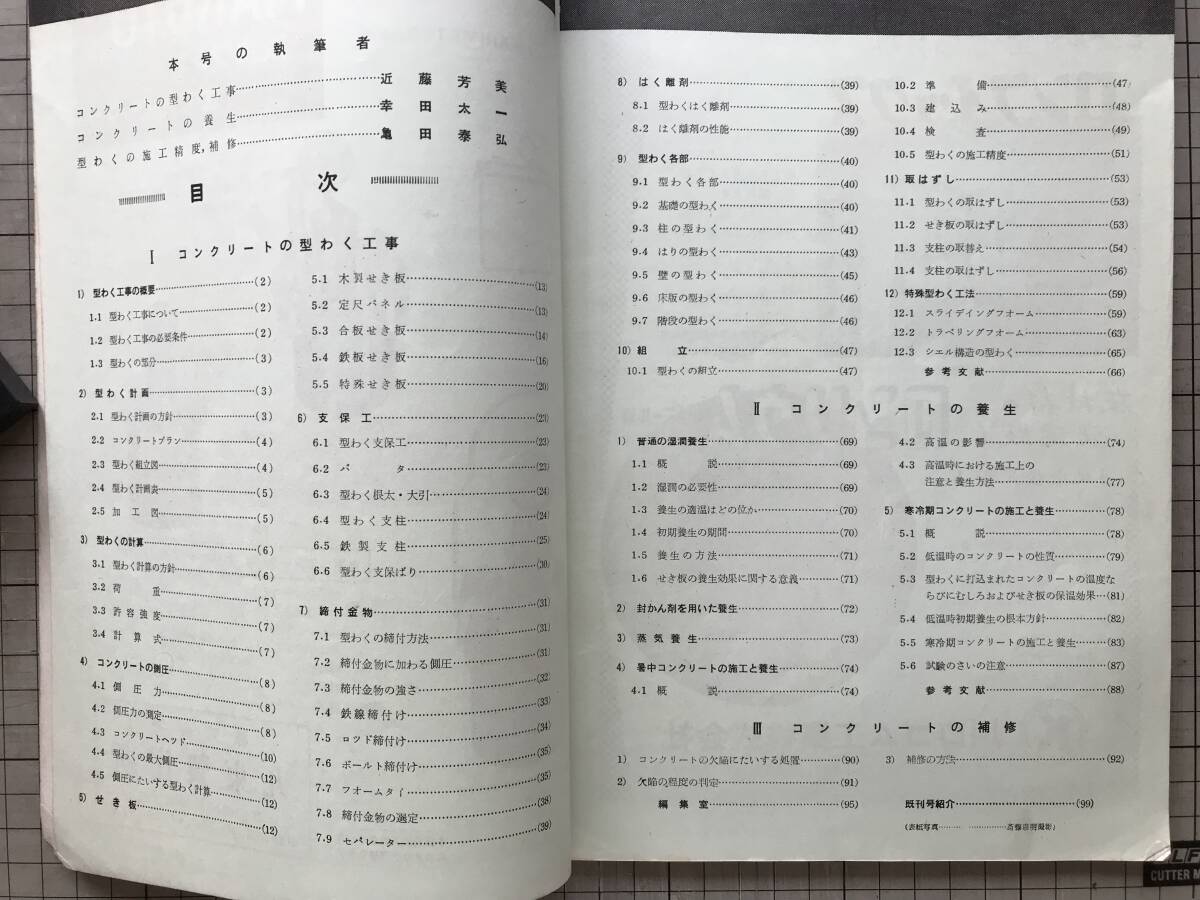 本号の執筆者
コンクリートの型わく工事……近藤芳美
コンクリートの養生……幸田太一
型わくの施工精度,補修……亀田泰弘
目次
Ⅰ コンクリートの型わく工事
1) 型わく工事の概要……(2)
1.1 型わく工事について……(2)
1.2 型わく工事の必要条件……(2)
1.3 型わくの部分……(3)
2) 型わく計画……(3)
2.1 型わく計画の方針……(3)
2.2 コンクリートプラン……(4)
2.3 型わく組立図……(4)
2.4 型わく計画表……(5)
2.5 加工図……(5)
3) 型わくの計算……(6)
3.1 型わく計算の方針……(6)
3.2 荷重……(7)
3.3 許容強度……(7)
3.4 計算式……(7)
4) コンクリートの側圧……(8)
4.1 側圧力……(8)
4.2 側圧力の測定……(8)
4.3 コンクリートヘッド……(10)
4.4 型わくの最大側圧……(12)
4.5 側圧にたいする型わく計算……(12)
5) せき板……(12)
5.1 木製せき板……(13)
5.2 定尺パネル……(13)
5.3 合板せき板……(14)
5.4 鉄板せき板……(16)
5.5 特殊せき板……(20)
6) 支保工……(23)
6.1 型わく支保工……(23)
6.2 バタ……(23)
6.3 型わく根太・大引……(24)
6.4 型わく支柱……(24)
6.5 鉄製支柱……(25)
6.6 型わく支保ばり……(30)
7) 締付金物……(31)
7.1 型わくの締付方法……(31)
7.2 締付金物に加わる側圧……(31)
7.3 締付金物の強さ……(32)
7.4 鉄線締付け……(33)
7.5 ロッド締付け……(34)
7.6 ボールト締付け……(35)
7.7 フォームタイ……(35)
7.8 締付金物の選定……(38)
7.9 セパレーター……(39)
8) はく離剤……(39)
8.1 型わくはく離剤……(39)
8.2 はく離剤の性能……(39)
9) 型わく各部……(40)
9.1 型わく各部……(40)
9.2 基礎の型わく……(40)
9.3 柱の型わく……(41)
9.4 はりの型わく……(43)
9.5 壁の型わく……(45)
9.6 床版の型わく……(46)
9.7 階段の型わく……(46)
10) 組立……(47)
10.1 型わくの組立……(47)
10.2 準備……(47)
10.3 建込み……(48)
10.4 検査……(49)
10.5 型わくの施工精度……(51)
11) 取はずし……(53)
11.1 型わくの取はずし……(53)
11.2 せき板の取はずし……(53)
11.3 支柱の取替え……(54)
11.4 支柱の取はずし……(56)
12) 特殊型わく工法……(59)
12.1 スライデイングフォーム……(59)
12.2 トラベリングフォーム……(63)
12.3 シエル構造の型わく……(65)
参考文献……(66)
Ⅱ コンクリートの養生
1) 普通の湿潤養生……(69)
1.1 概説……(69)
1.2 湿潤の必要性……(69)
1.3 養生の適温はどの位か……(70)
1.4 初期養生の期間……(70)
1.5 養生の方法……(71)
1.6 せき板の養生効果に関する意義……(71)
2) 封かん剤を用いた養生……(72)
3) 蒸気養生……(73)
4) 暑中コンクリートの施工と養生……(74)
4.1 概説……(74)
4.2 高温の影響……(74)
4.3 高温時における施工上の
注意と養生方法……(77)
5) 寒冷期コンクリートの施工と養生……(78)
5.1 概説……(78)
5.2 低温時のコンクリートの性質……(79)
5.3 型わくに打込まれたコンクリートの温度な
らびにむしろおよびせき板の保温効果…(81)
5.4 低温時初期養生の根本方針……(82)
5.5 寒冷期コンクリートの施工と養生……(83)
5.6 試験のさいの注意……(87)
参考文献……(88)
Ⅲ コンクリートの補修
1) コンクリートの欠陥にたいする処置……(90)
2) 欠陥の程度の判定……(91)
編集室……(95)
3) 補修の方法……(92)
既刊号紹介……(99)
(表紙写真…… ……斎藤 撮影)
CUTTER M